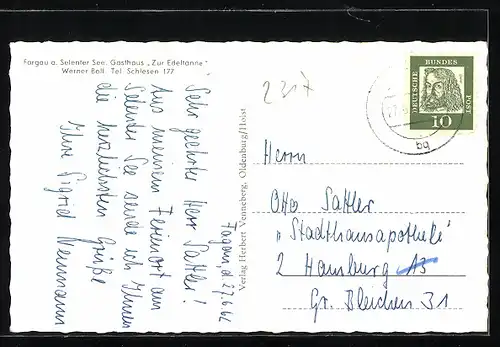 Fargau a. Selenter See. Gasthaus „Zur Edeltanne"
Werner Boll. Tel. Schlesen 177
Fargau, d. 27.6.62
Sehr geehrter Herr Sattler!
Aus meinem Ferienort am
Selenter See sende ich Ihnen
die herzlichsten Grüße
Ihre Sigrid Neumann
Verlag Herbert Venneberg, Oldenburg/Holst
2317
DEUTSCHE BUNDES POST
10
bg
Herrn
Otto Sattler
„Stadthausapotheke"
2 Hamburg 13
Gr. Bleichen 31